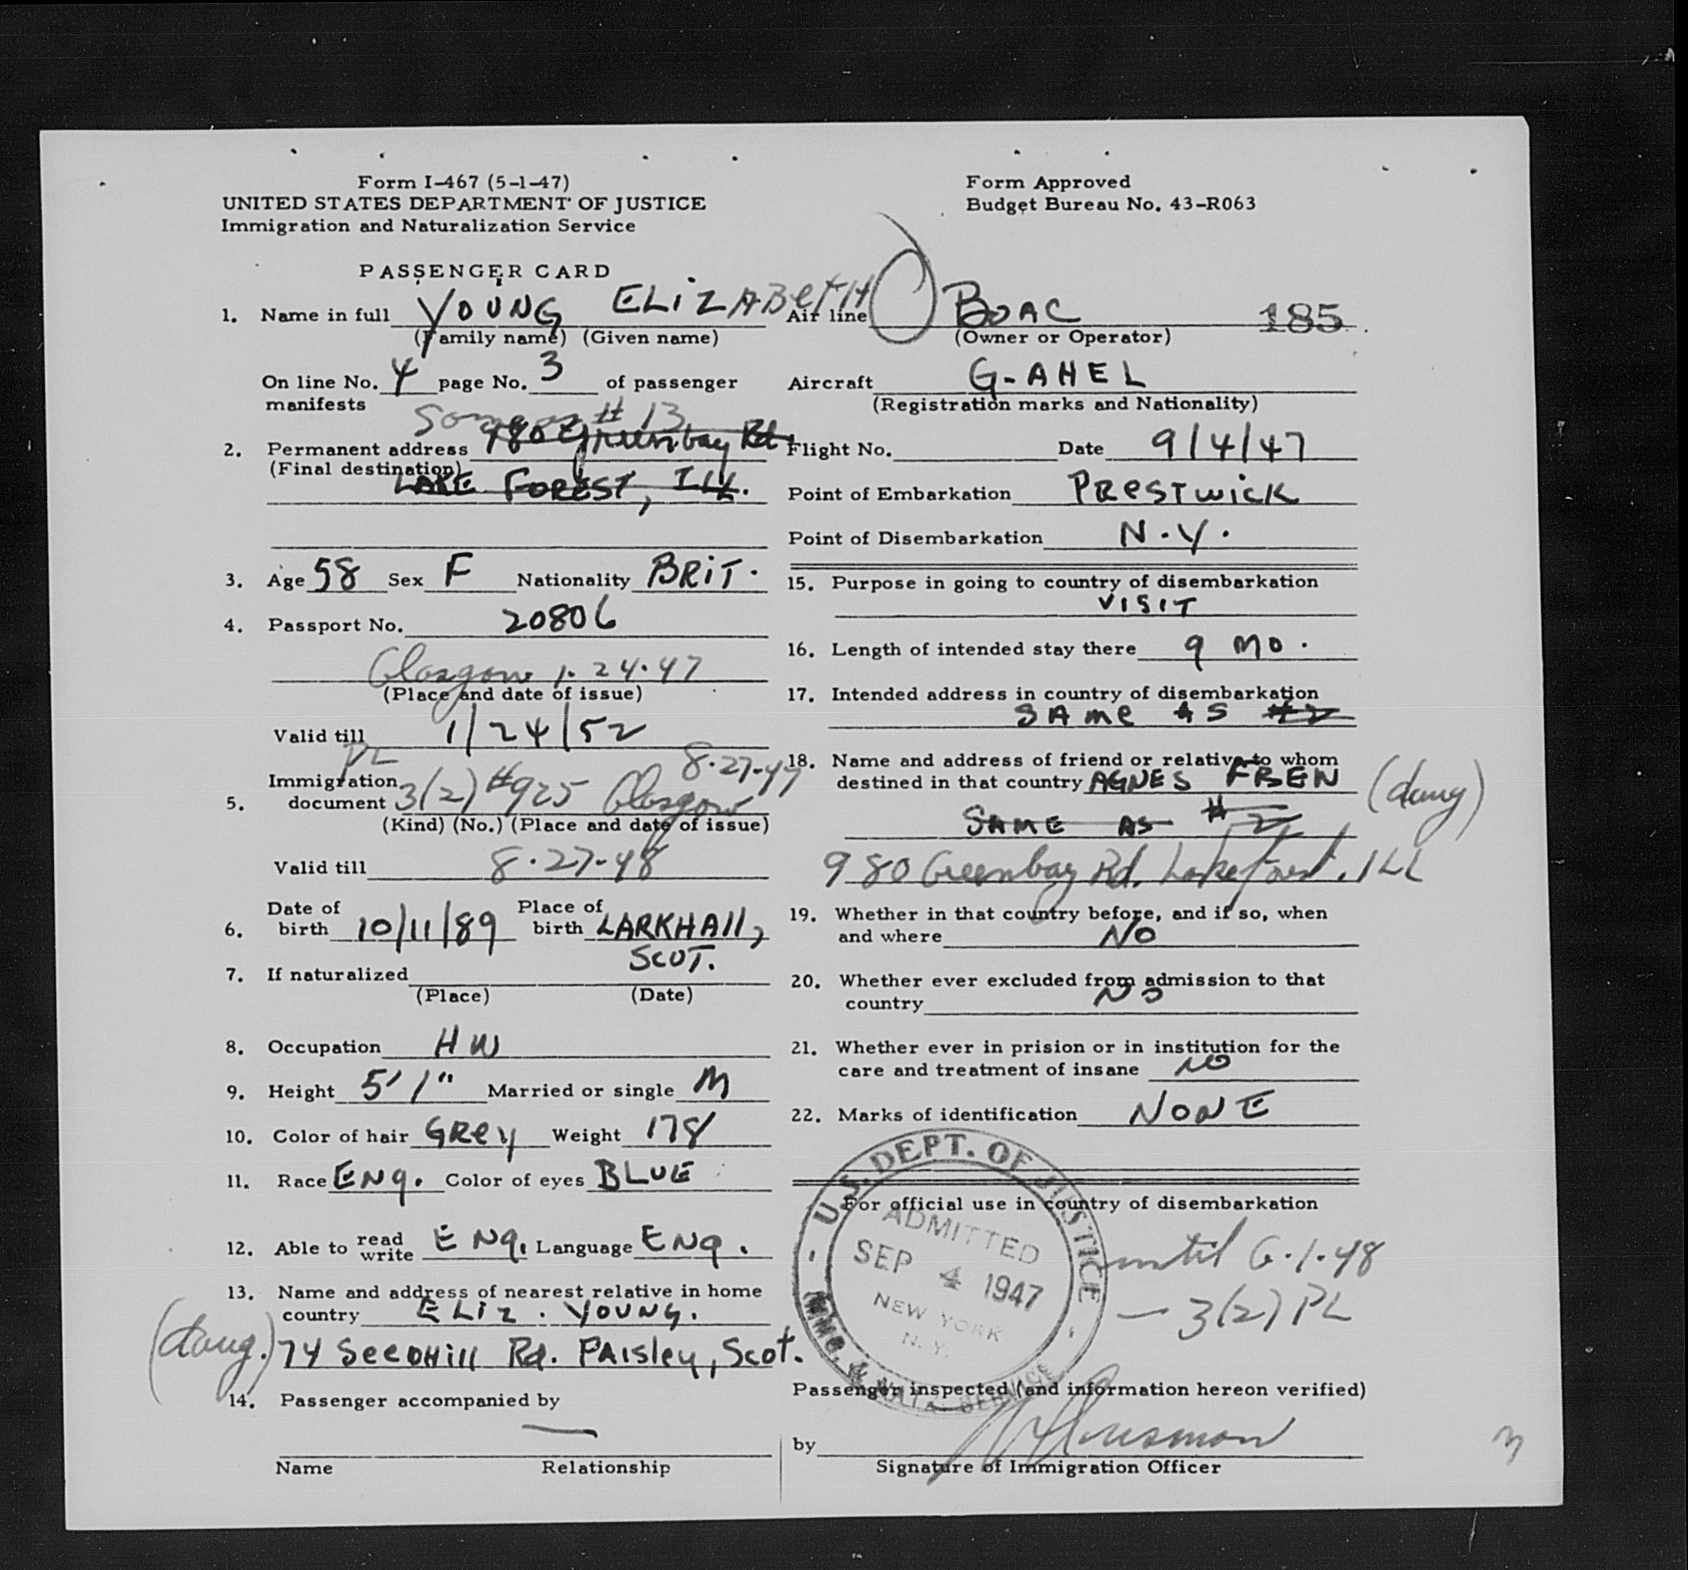 Form I-467 (5-1-47)
UNITED STATES DEPARTMENT OF JUSTICE
Immigration and Naturalization Service
Form Approved
Budget Bureau No. 43-R063
PASSENGER CARD
1. Name in full YOUNG ELIZABETH
(Family name) (Given name)
On line No. 4 page No. 3 of passenger
manifests
Same as # 13
2. Permanent address 980 Greenbay Rd
(Final destination)
LAKE FOREST, ILL.
3. Age 58 Sex F Nationality BRIT.
4. Passport No. 20806
Glasgow 1.24.47
(Place and date of issue)
Valid till 1/24/52
PL 8.27.47
Immigration
5. document 3(2) #925 Glasgow
(Kind) (No.) (Place and date of issue)
Valid till 8.27.48
6. Date of birth 10/11/89 Place of birth LARKHAll,
SCOT.
7. If naturalized
(Place) (Date)
8. Occupation HW
9. Height 5' 1" Married or single M
10. Color of hair GRey Weight 178
11. Race ENg. Color of eyes BLUE
12. Able to read write ENg. Language ENg.
13. Name and address of nearest relative in home
country ELIZ. YOUNG.
(daug.) 74 SeeDHill Rd. PAisley, Scot.
14. Passenger accompanied by
—
Name Relationship
Air line BOAC 185
(Owner or Operator)
Aircraft G-AHEL
(Registration marks and Nationality)
Flight No. Date 9/4/47
Point of Embarkation PRESTWICK
Point of Disembarkation N.Y.
15. Purpose in going to country of disembarkation
VISIT
16. Length of intended stay there 9 MO.
17. Intended address in country of disembarkation
SAMe AS #2
18. Name and address of friend or relative to whom
destined in that country AGNES (daug)
SAME AS #2
980 Greenbay Rd. Lake Forest, ILL
19. Whether in that country before, and if so, when
and where NO
20. Whether ever excluded from admission to that
country NO
21. Whether ever in prision or in institution for the
care and treatment of insane NO
22. Marks of identification NONE
For official use in country of disembarkation
U.S. DEPT. OF JUSTICE
ADMITTED
SEP 4 1947
NEW YORK
N.Y.
IMMG. & NATZ. SERVICE
until 6.1.48
— 3(2) PL
Passenger inspected (and information hereon verified)
by
Signature of Immigration Officer